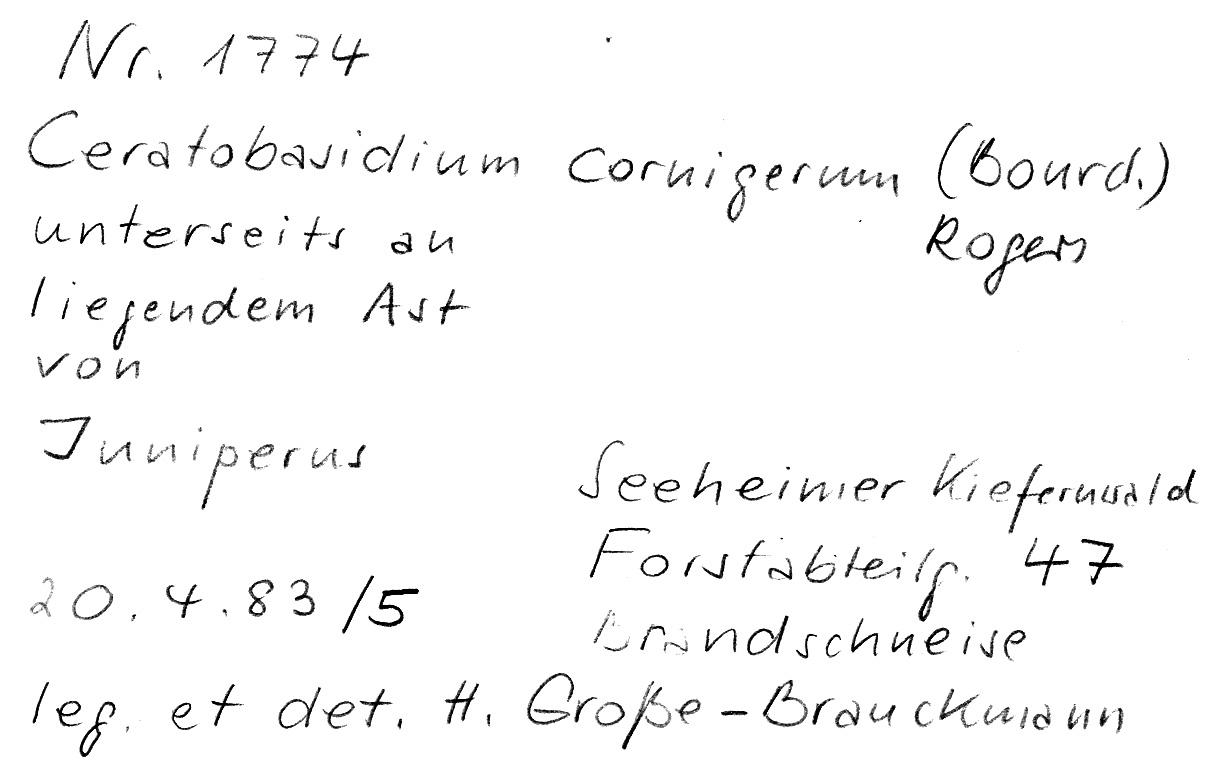 Nr. 1774
Ceratobasidium cornigerum (Bourd.)
Rogers
unterseits an
liegendem Ast
von
Juniperus
Seeheimer Kiefernwald
Forstabteilg. 47
Brandschneise
20.4.83/5
leg. et det. H. Große-Brauckmann